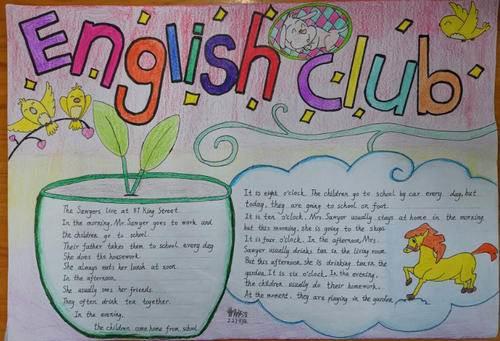 English Club
The Sawyers live at 87 King Street.
In the morning, Mr. Sawyer goes to work and
the children go to school.
Their father takes them to school every day.
She does the housework.
She always eats her lunch at noon.
In the afternoon,
She usually sees her friends.
They often drink tea together.
In the evening,
the children come home from school.
It is eight o'clock. The children go to school by car every day, but
today, they are going to school on foot.
It is ten o'clock. Mrs. Sawyer usually stays at home in the morning
but this morning, she is going to the shops.
It is four o'clock. In the afternoon, Mrs.
Sawyer usually drinks tea in the living room.
But this afternoon, she is drinking tea in the
garden. It is six o'clock. In the evening,
the children usually do their homework.
At the moment, they are playing in the garden.